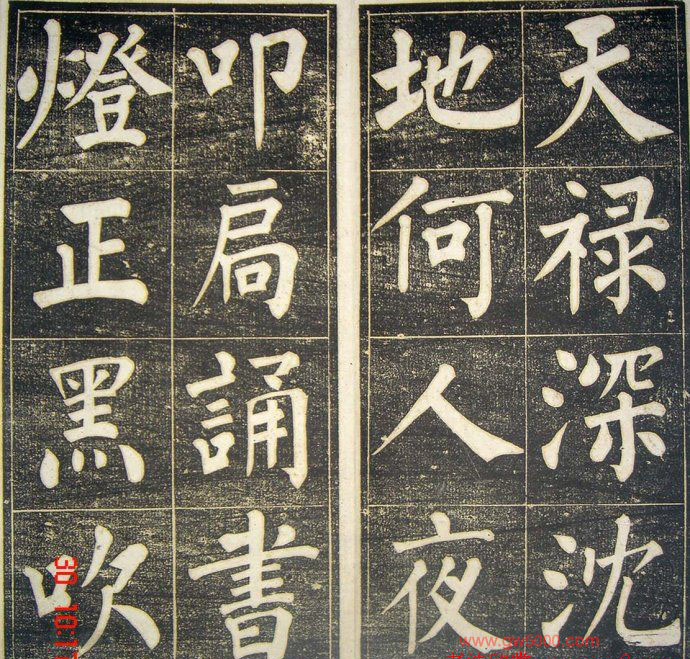 天禄深沈
地何人夜
叩扃誦書
燈正黑吹
www.gw5000.com